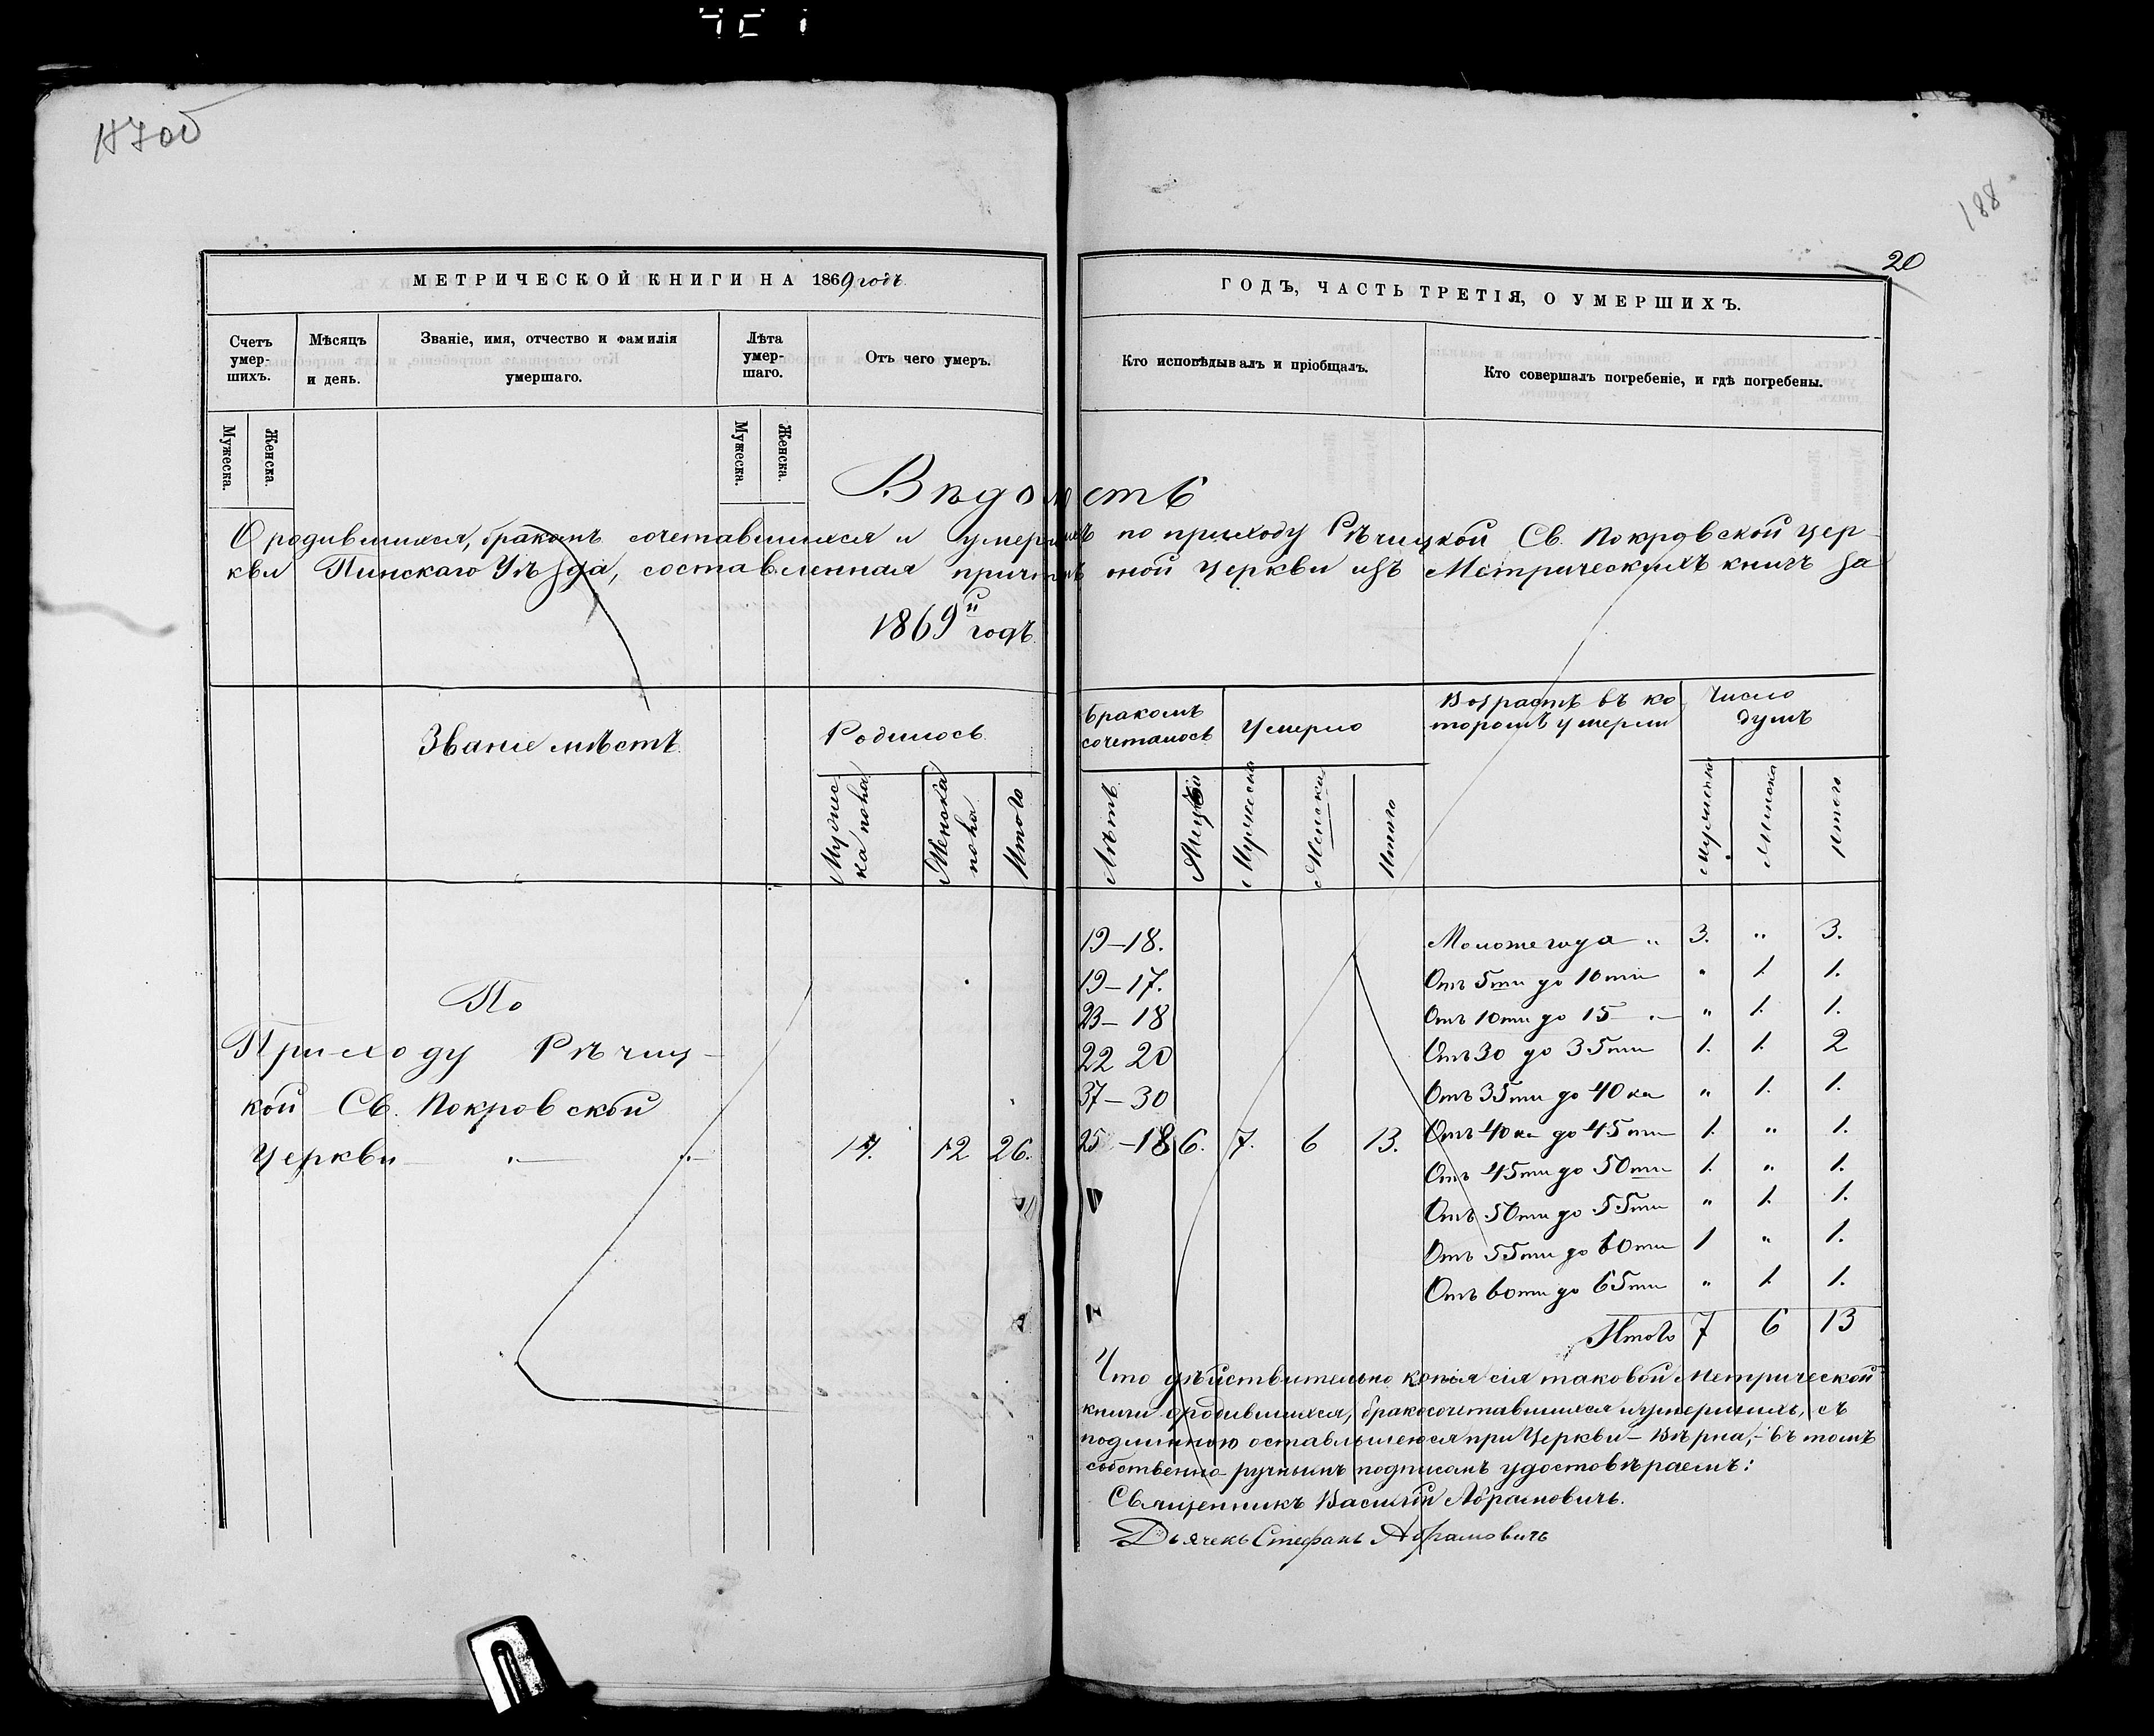 187об
188
20
МЕТРИЧЕСКОЙ КНИГИ НА 1869 годъ
ГОДЪ, ЧАСТЬ ТРЕТІЯ, О УМЕРШИХЪ.
Счетъ умер-шихъ.
Мѣсяцъ и день.
Званіе, имя, отчество и фамилія умершаго.
Лѣта умер-шаго.
Отъ чего умеръ.
Кто исповѣдывалъ и пріобщалъ.
Кто совершалъ погребеніе, и гдѣ погребены.
Мужеска.
Женска.
Мужеска.
Женска.
Вѣдомость
О родившихся, бракомъ сочетавшихся и умершихъ по приходу Рѣчицкой Св. Покровской цер-
кви Пинскаго Уѣзда, составленная причтомъ оной церкви изъ Метрическихъ книгъ за
1869й годъ.
Званіе мѣстъ
Родилось
Бракомъ сочеталось
Умерло
Возрастъ въ ко
торомъ умерли
Число
душъ
Мужес
ка пола
Женска
пола
Итого
Лѣтъ
Мужеска
Женска
Итого
Мужеска
Женска
Итого
19–18.
Моложе года " 3. " 3.
19–17.
Отъ 5ти до 10ти " 1. 1.
23–18
Отъ 10ти до 15 " 1. 1.
22 20
Отъ 30 до 35ти 1. 1. 2
37–30
Отъ 35ти до 40ка " 1. 1.
По
Приходу Рѣчиц-
кой Св. Покровской
Церкви " " 14. 12 26. 25–18 6. 7. 6 13.
Отъ 40ка до 45ти 1. " 1.
Отъ 45ти до 50ти 1. " 1.
Отъ 50ти до 55ти " 1. 1.
Отъ 55ти до 60ти 1 " 1.
Отъ 60ти до 65ти " 1. 1.
Итого 7 6 13
Что дѣйствительно копія сія таковой Метрической
книги о родившихся, бракосочетавшихся и умершихъ, съ
подлинною оставльшеюся при Церкви – Вѣрна, – въ томъ
собственно ручнымъ подписомъ удостовѣряемъ:
Священникъ Василій Абрамовичъ.
Дьячекъ Стефанъ Абрамовичъ